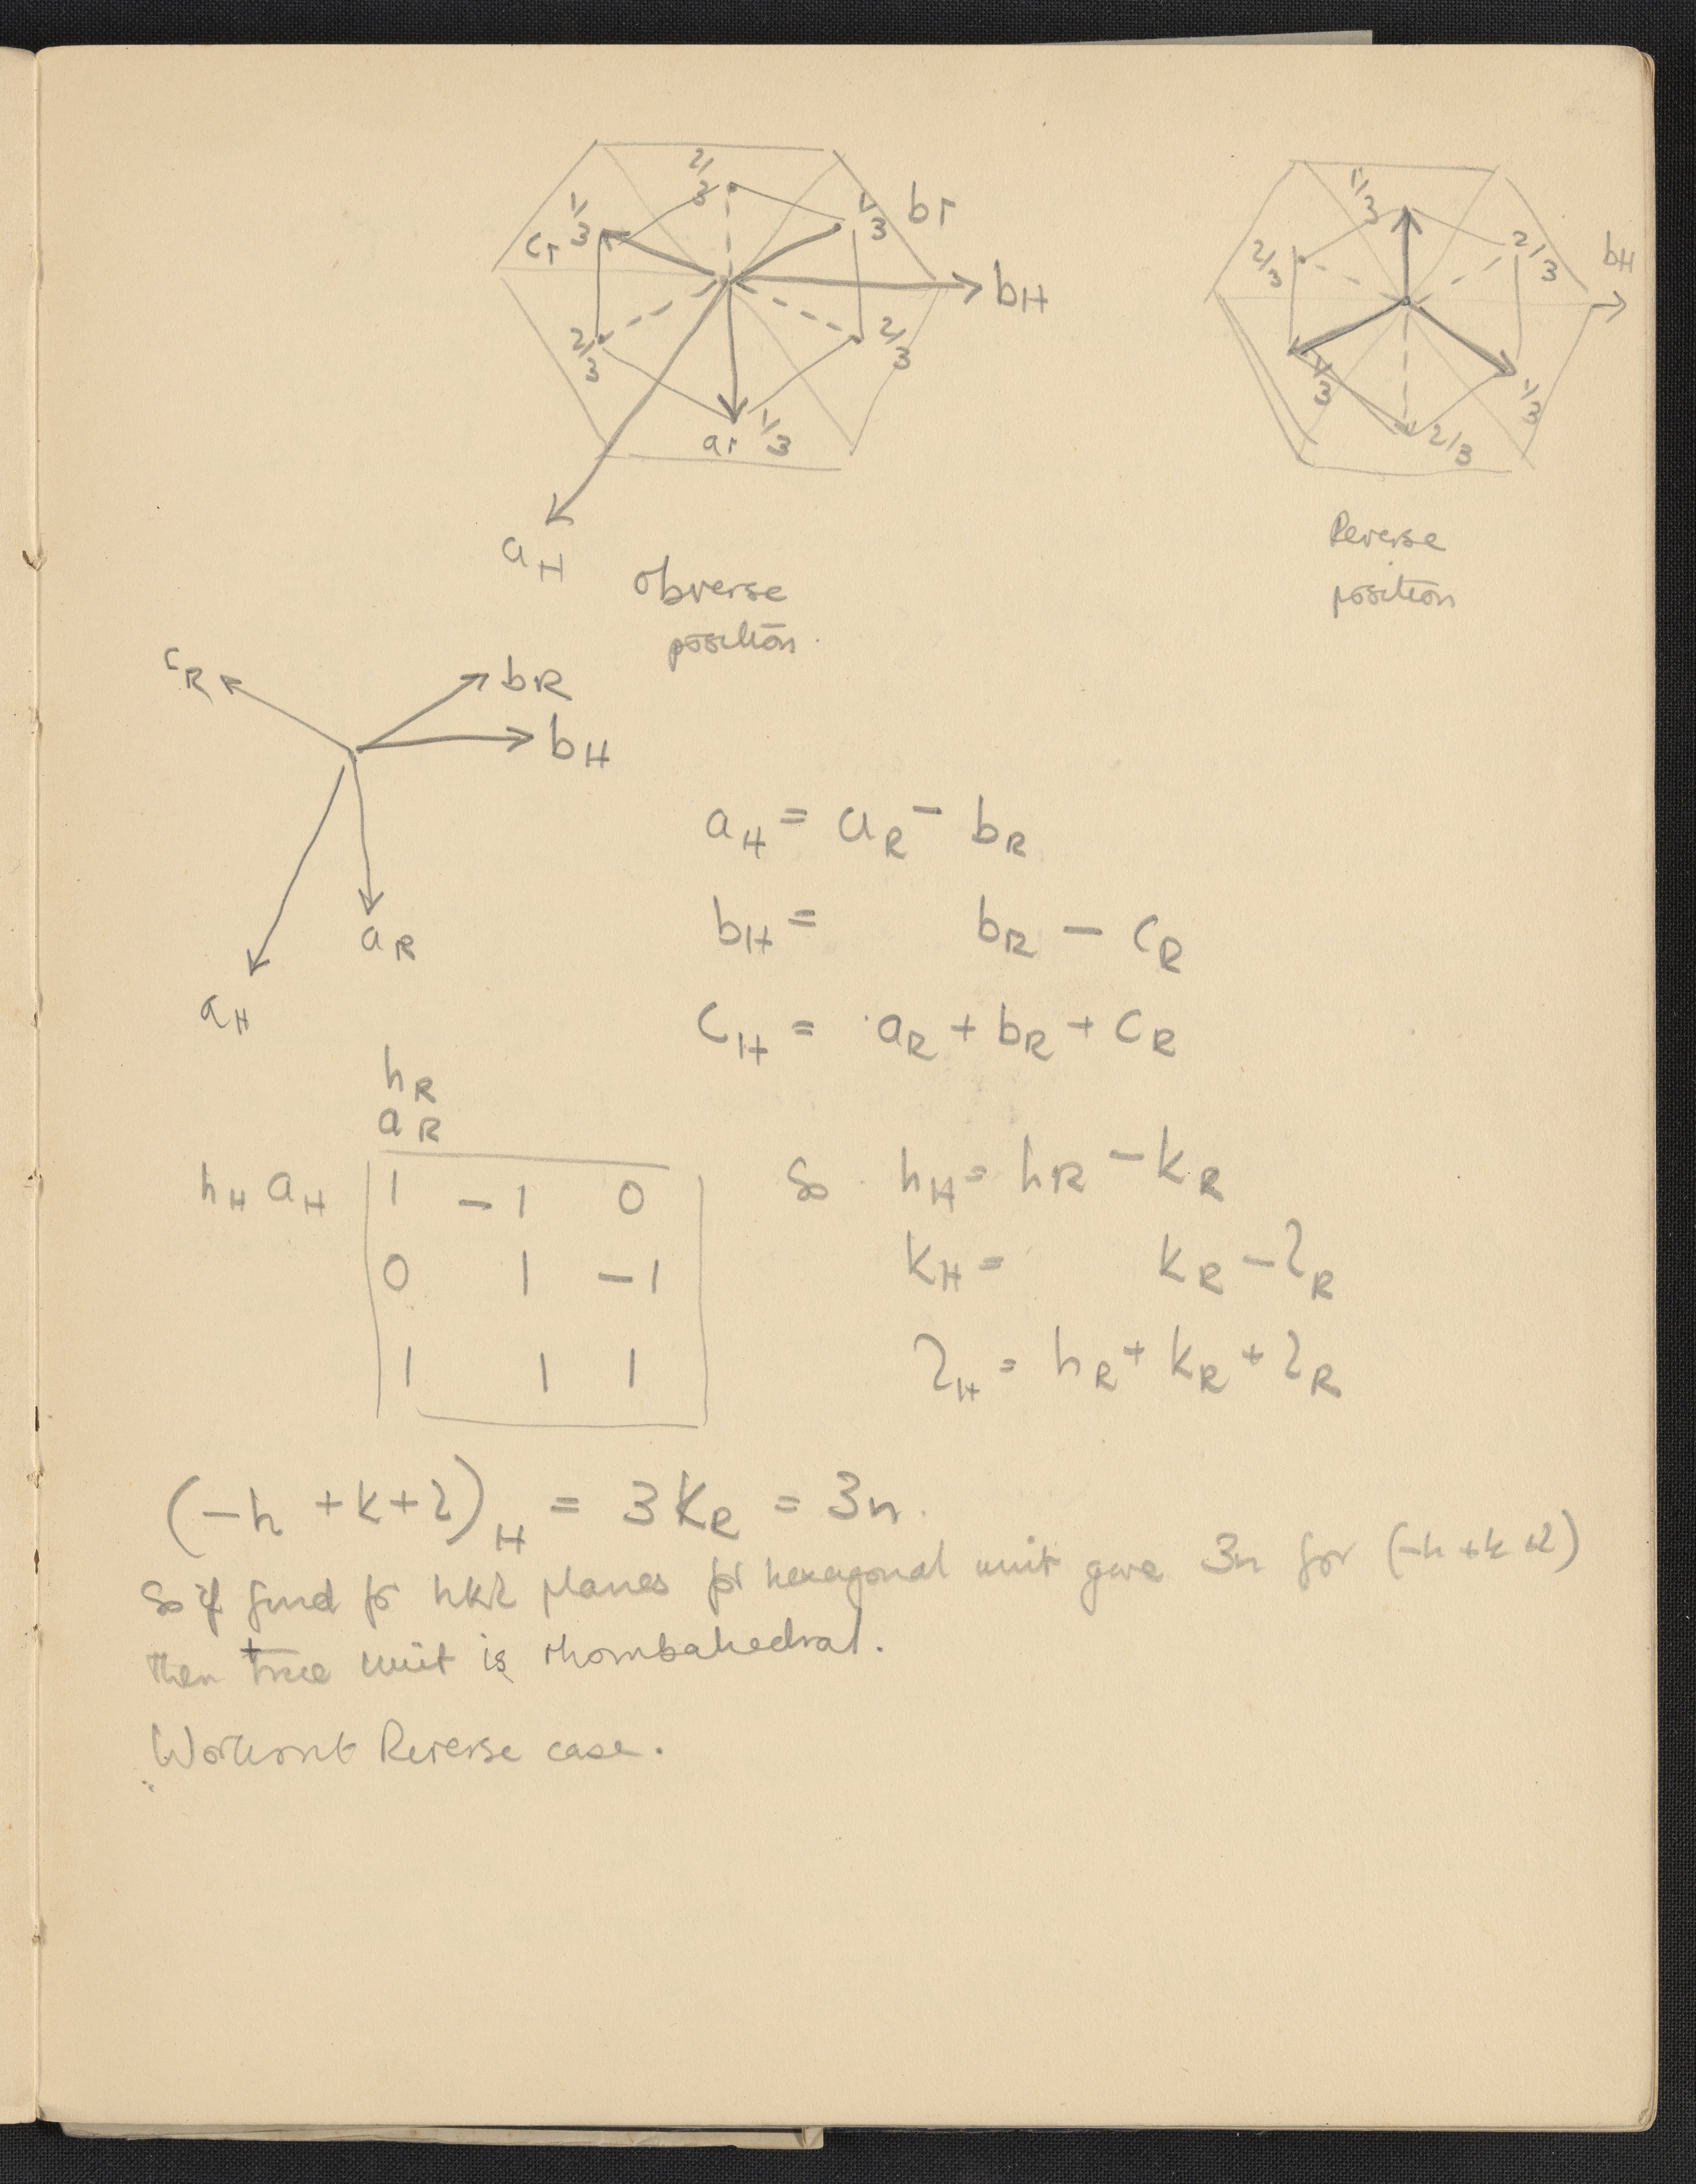 2/3
1/3
cr
1/3
br
bH
2/3
2/3
ar
1/3
aH
obverse
position
1/3
2/3
2/3
bH
1/3
1/3
2/3
Reverse
position
cR
bR
bH
aR
aH
aH = aR - bR
bH = bR - cR
cH = aR + bR + cR
hR
aR
hH aH
1 -1 0
0 1 -1
1 1 1
So hH = hR - kR
kH = kR - lR
lH = hR + kR + lR
(-h + k + l)H = 3kR = 3n.
So if find for hkl planes for hexagonal unit give 3n for (-h + k + l)
then true unit is rhombahedral.
Workout Reverse case.